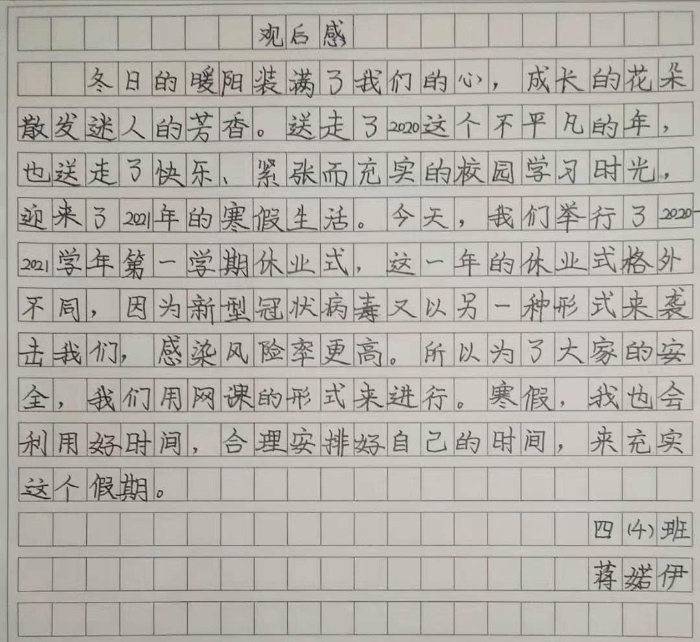 观后感
冬日的暖阳装满了我们的心，成长的花朵
散发迷人的芳香。送走了2020这个不平凡的年，
也送走了快乐、紧张而充实的校园学习时光，
迎来了2021年的寒假生活。今天，我们举行了2020-
2021学年第一学期休业式，这一年的休业式格外
不同，因为新型冠状病毒又以另一种形式来袭
击我们，感染风险率更高。所以为了大家的安
全，我们用网课的形式来进行。寒假，我也会
利用好时间，合理安排好自己的时间，来充实
这个假期。
四(4)班
蒋婼伊